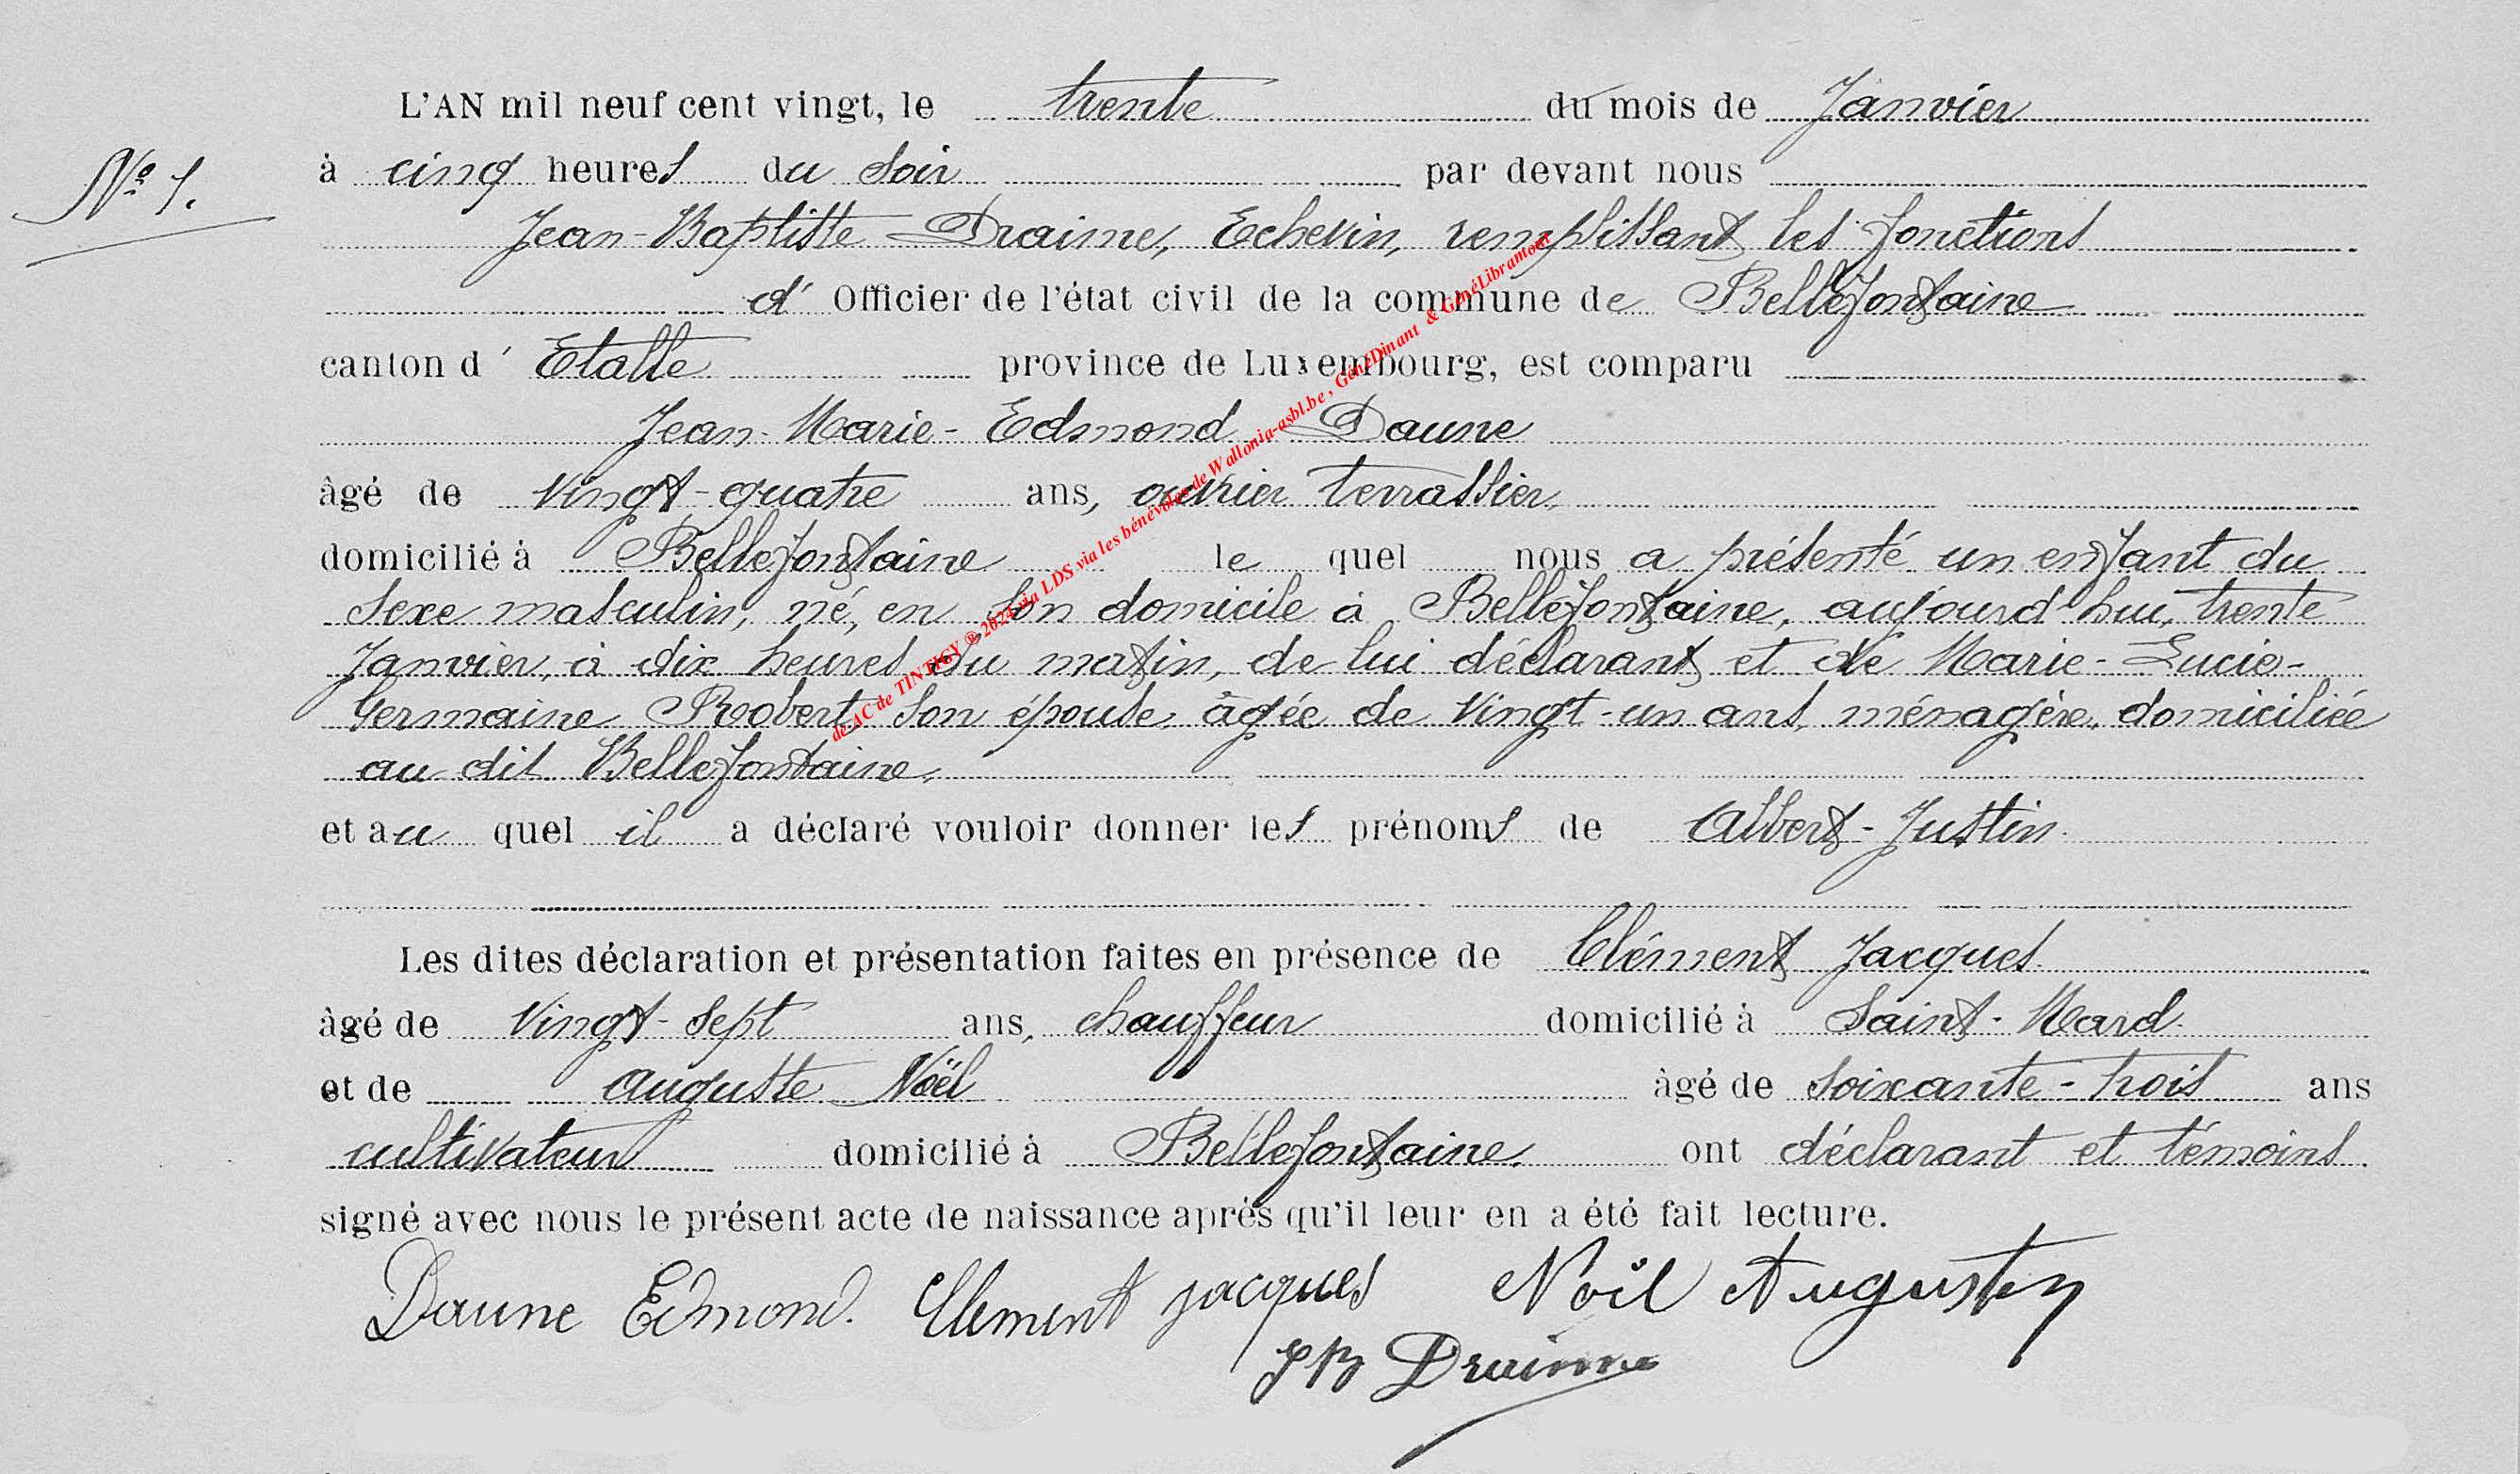 L'AN mil neuf cent vingt, le trente du mois de Janvier
N° 1.
à cinq heures du soir par devant nous
Jean-Baptiste Draime, Echevin, remplissant les fonctions
d' Officier de l'état civil de la commune de Bellefontaine
canton d' Etalle province de Luxembourg, est comparu
Jean-Marie-Edmond Daune
âgé de vingt-quatre ans, ouvrier terrassier,
domicilié à Bellefontaine le quel nous a présenté un enfant du
sexe masculin, né, en son domicile à Bellefontaine, aujourd'hui, trente
Janvier, à dix heures du matin, de lui déclarant et de Marie-Lucie-
Germaine Robert son épouse, âgée de vingt-un ans, ménagère, domiciliée
au dit Bellefontaine,
et au quel il a déclaré vouloir donner les prénoms de Albert-Justin.
Les dites déclaration et présentation faites en présence de Clément Jacques
âgé de vingt-sept ans, chauffeur domicilié à Saint-Mard
et de Auguste Noël âgé de soixante-trois ans
cultivateur domicilié à Bellefontaine, ont déclarant et témoins
signé avec nous le présent acte de naissance après qu'il leur en a été fait lecture.
Daune Edmond. Clement jacques Noël Auguste
JB Draime
de AC de TINTIGY ® 2024 via LDS via les bénévoles de Wallonia-asbl.be, GénéDinant & GénéLibramont